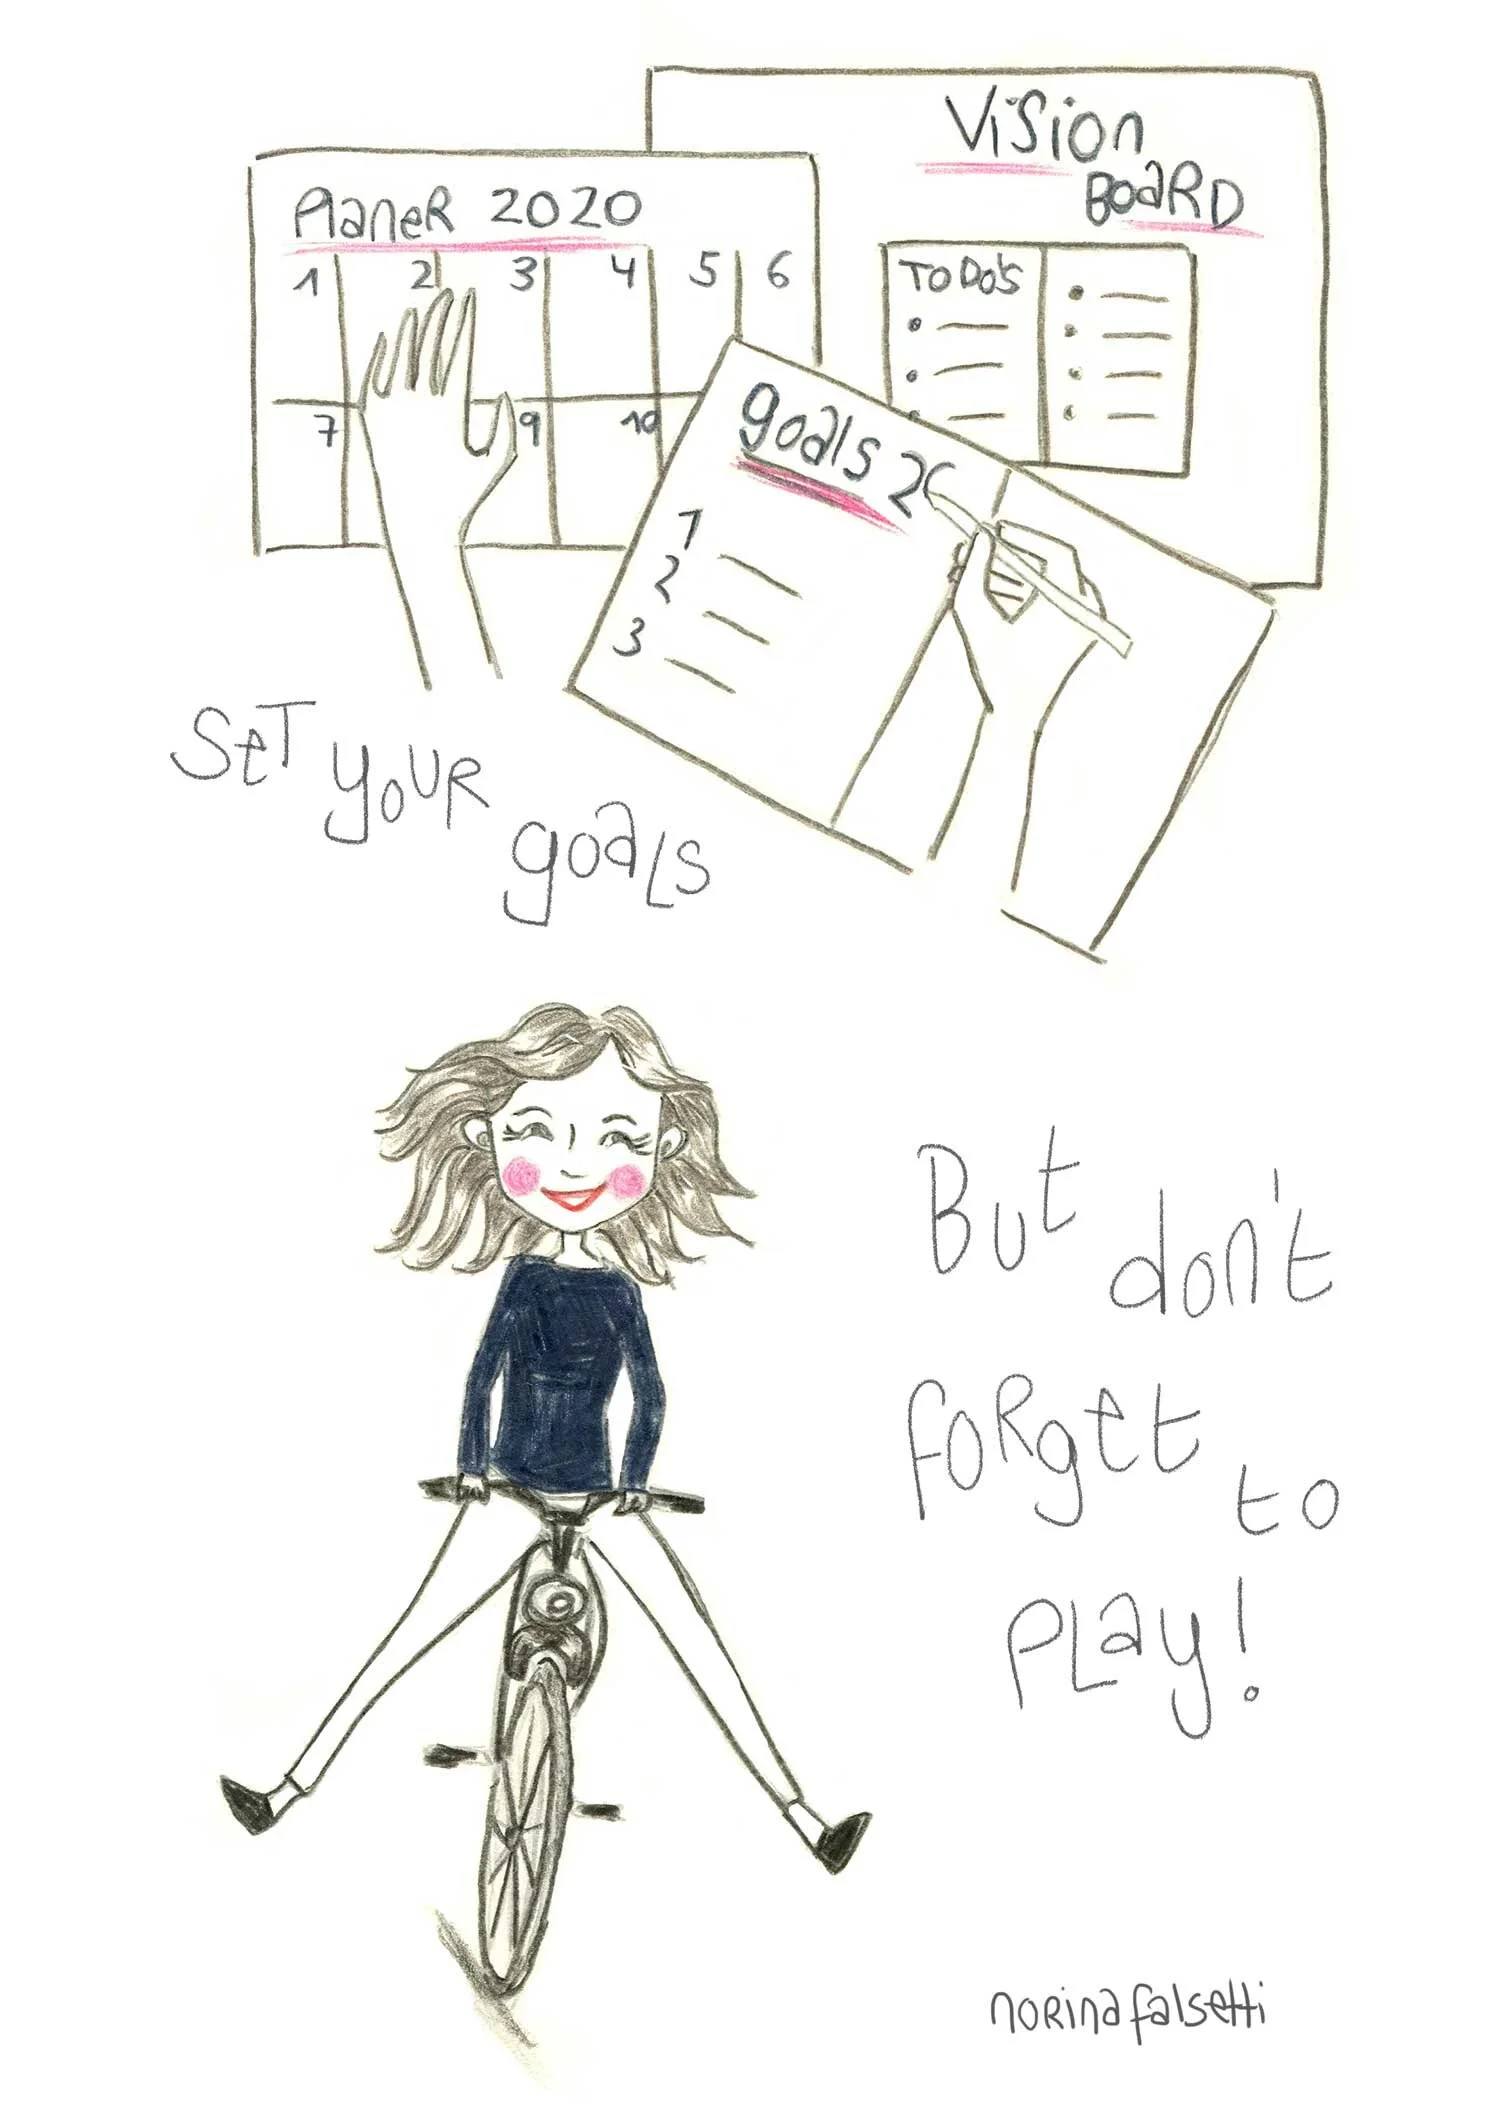 Vision
BoaRD
PlaneR 2020
1 2 3 4 5 6
7 9 10
TO DO's
goals 2
1
2
3
SeT youR goaLS
But don't
foRget to
PLay!
noRinafalsetti